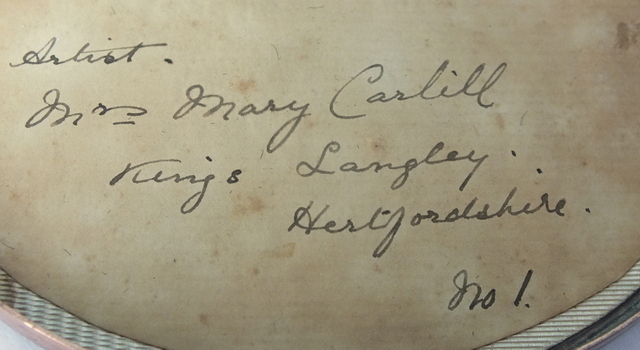 Artist.
Mrs Mary Carlill
Kings Langley.
Hertfordshire.
No 1.